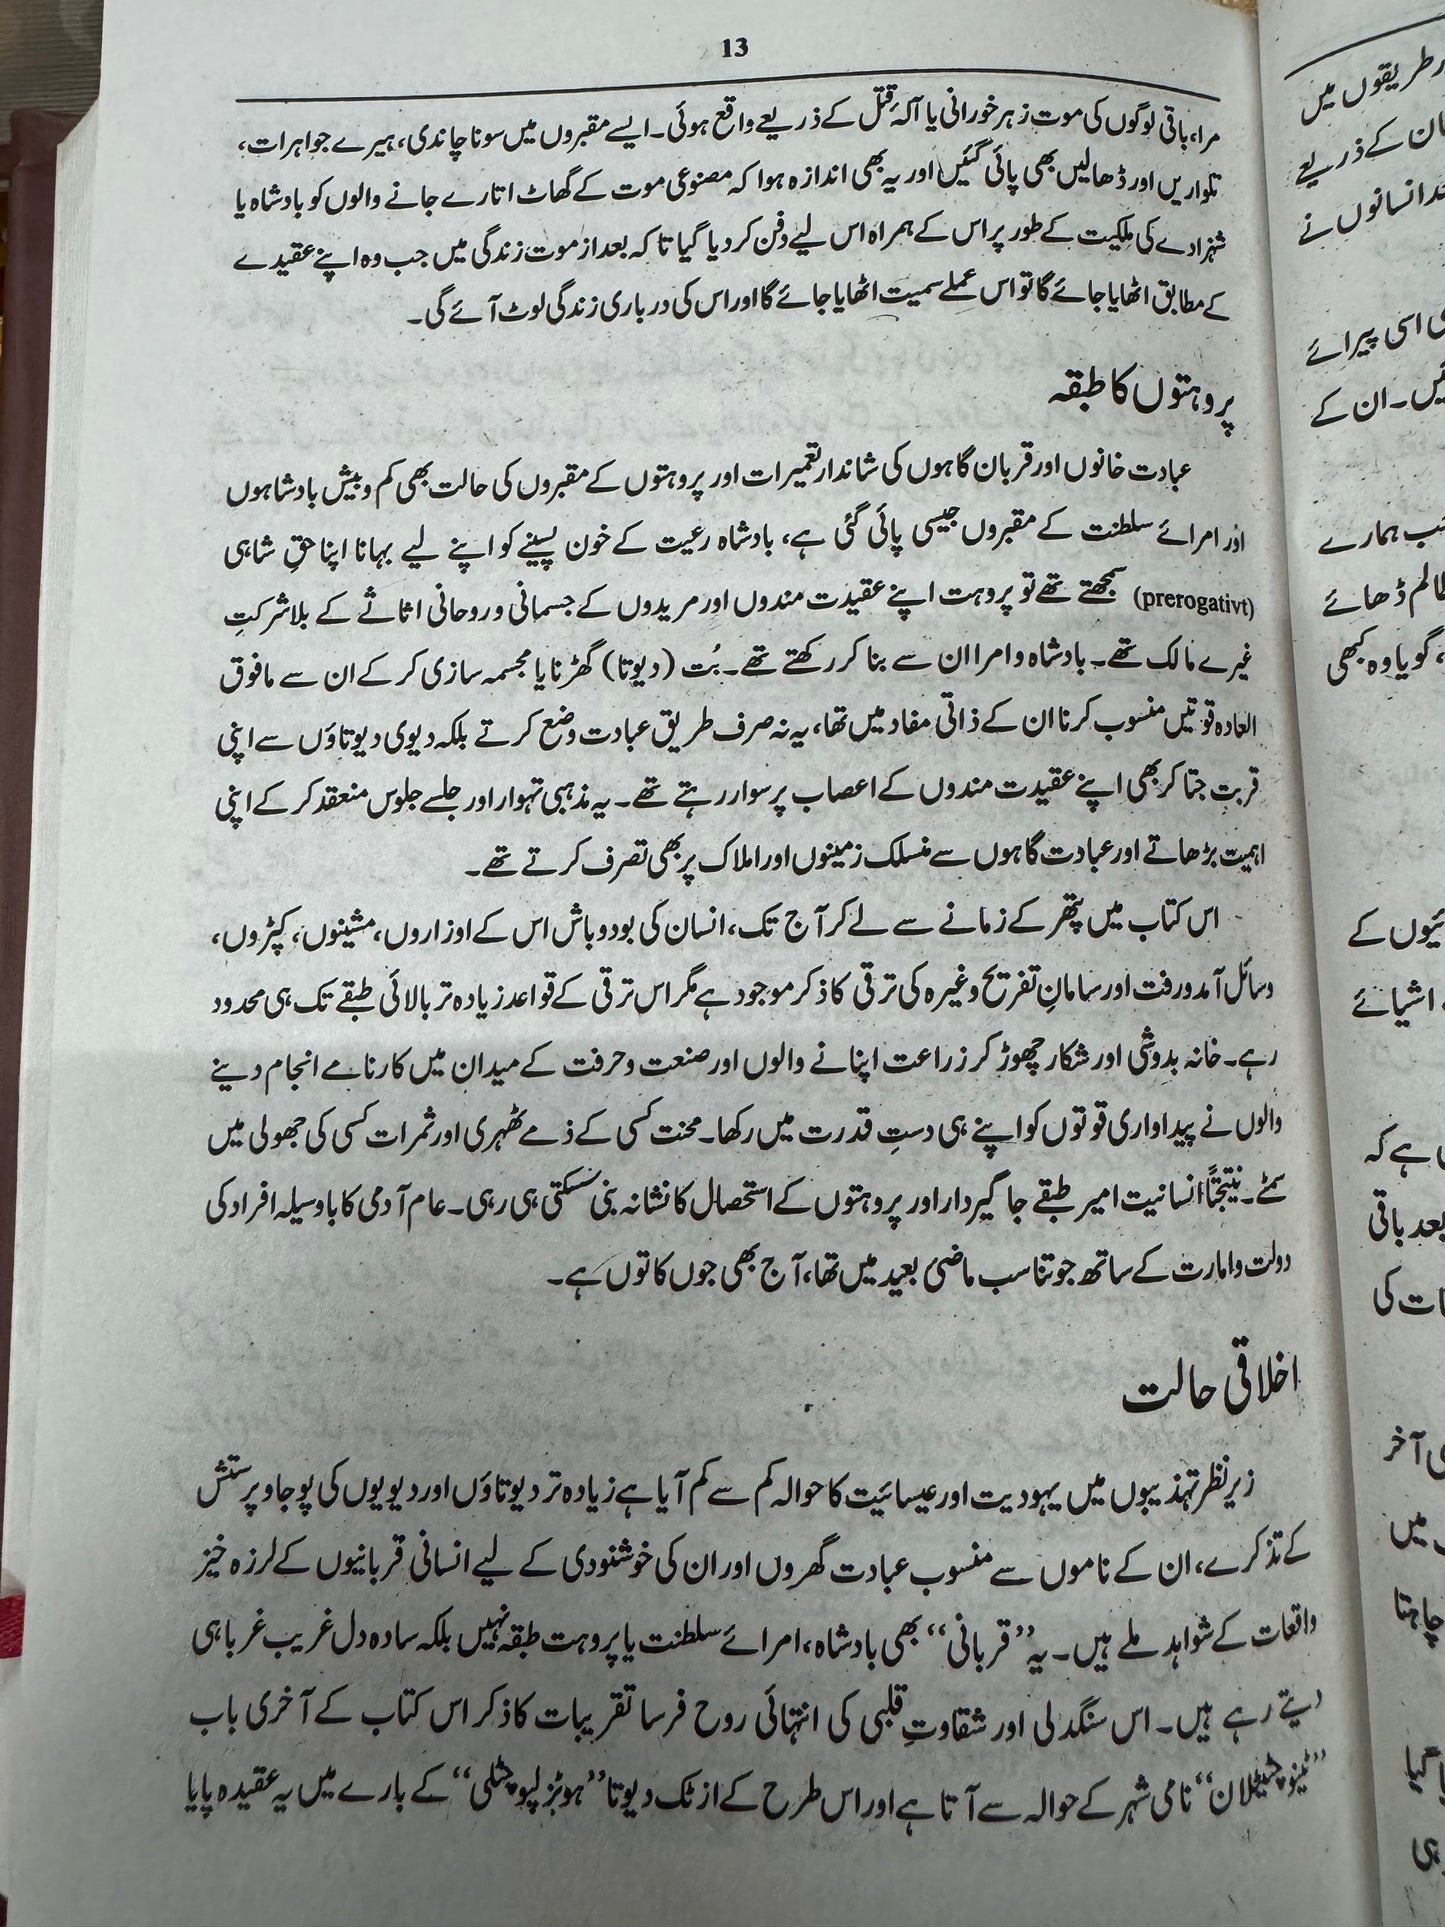 13
مرا، باقی لوگوں کی موت زہر خورانی یا آلۂ قتل کے ذریعے واقع ہوئی۔ ایسے مقبروں میں سونا چاندی، ہیرے جواہرات،
تلواریں اور ڈھالیں بھی پائی گئیں اور یہ بھی اندازہ ہوا کہ مصنوعی موت کے گھاٹ اتارے جانے والوں کو بادشاہ یا
شہزادے کی ملکیت کے طور پر اس کے ہمراہ اس لیے دفن کر دیا گیا تا کہ بعد از موت زندگی میں جب وہ اپنے عقیدے
کے مطابق اٹھایا جائے گا تو اس عملے سمیت اٹھایا جائے گا اور اس کی درباری زندگی لوٹ آئے گی۔
پروہتوں کا طبقہ
عبادت خانوں اور قربان گاہوں کی شاندار تعمیرات اور پروہتوں کے مقبروں کی حالت بھی کم و بیش بادشاہوں
اور امرائے سلطنت کے مقبروں جیسی پائی گئی ہے، بادشاہ رعیت کے خون پسینے کو اپنے لیے بہانا اپنا حقِ شاہی
(prerogativt) سمجھتے تھے تو پروہت اپنے عقیدت مندوں اور مریدوں کے جسمانی و روحانی اثاثے کے بلا شرکتِ
غیرے مالک تھے۔ بادشاہ و امرا ان سے بنا کر رکھتے تھے۔ بُت (دیوتا) گھڑنا یا مجسمہ سازی کر کے ان سے مافوق
العادہ قوتیں منسوب کرنا ان کے ذاتی مفاد میں تھا، یہ نہ صرف طریق عبادت وضع کرتے بلکہ دیوی دیوتاؤں سے اپنی
قربت جتا کر بھی اپنے عقیدت مندوں کے اعصاب پر سوار رہتے تھے۔ یہ مذہبی تہوار اور جلسے جلوس منعقد کر کے اپنی
اہمیت بڑھاتے اور عبادت گاہوں سے منسلک زمینوں اور املاک پر بھی تصرف کرتے تھے۔
اس کتاب میں پتھر کے زمانے سے لے کر آج تک، انسان کی بود و باش اس کے اوزاروں، مشینوں، کپڑوں،
وسائل آمدورفت اور سامانِ تفریح وغیرہ کی ترقی کا ذکر موجود ہے مگر اس ترقی کے قواعد زیادہ تر بالائی طبقے تک ہی محدود
رہے۔ خانہ بدوشی اور شکار چھوڑ کر زراعت اپنانے والوں اور صنعت و حرفت کے میدان میں کارنامے انجام دینے
والوں نے پیداواری قوتوں کو اپنے ہی دستِ قدرت میں رکھا۔ محنت کسی کے ذمے ٹھہری اور ثمرات کسی کی جھولی میں
سمٹے۔ نتیجتاً انسانیت امیر طبقے جاگیردار اور پروہتوں کے استحصال کا نشانہ بنی سسکتی ہی رہی۔ عام آدمی کا باوسیلہ افراد کی
دولت و امارت کے ساتھ جو تناسب ماضیٔ بعید میں تھا، آج بھی جوں کا توں ہے۔
اخلاقی حالت
زیر نظر تہذیبوں میں یہودیت اور عیسائیت کا حوالہ کم سے کم آیا ہے زیادہ تر دیوتاؤں اور دیویوں کی پوجا و پرستش
کے تذکرے، ان کے ناموں سے منسوب عبادت گھروں اور ان کی خوشنودی کے لیے انسانی قربانیوں کے لرزہ خیز
واقعات کے شواہد ملے ہیں۔ یہ ”قربانی“ بھی بادشاہ، امرائے سلطنت یا پروہت طبقہ نہیں بلکہ سادہ دل غریب غربا ہی
دیتے رہے ہیں۔ اس سنگدلی اور شقاوتِ قلبی کی انتہائی روح فرسا تقریبات کا ذکر اس کتاب کے آخری باب
نامی شہر کے حوالہ سے آتا ہے اور اس طرح کے ازٹک دیوتا ”ہوئزلپوچٹلی“ کے بارے میں یہ عقیدہ پایا
طریقوں میں
ان کے ذریعے
انسانوں نے
اسی پیرائے
ان کے
ہمارے
ڈھائے
گویا وہ کبھی
کے
اشیائے
ہے کہ
بعد باقی
کی
آخر
میں
چاہتا
گیا
ہی